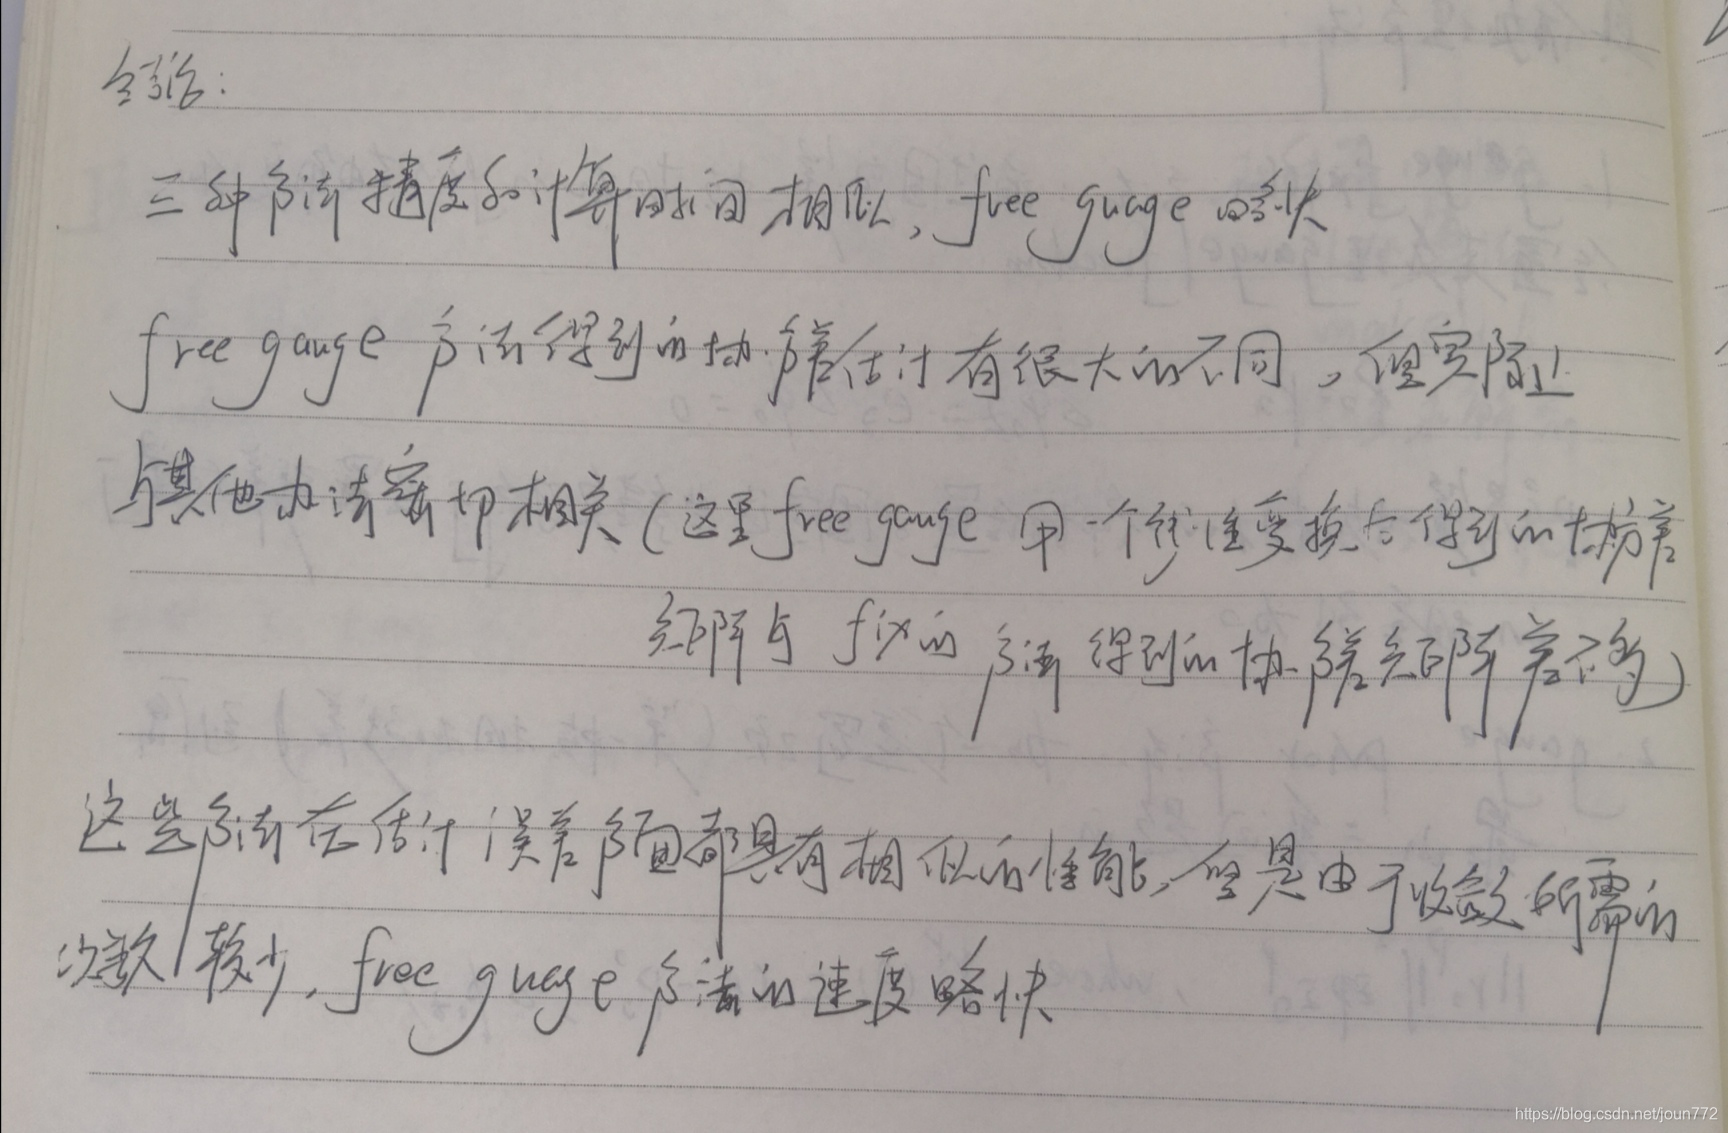 结论：
三种方法精度和计算时间相似，free guage 略快
free gauge 方法得到的协方差估计有很大的不同，但实际上
与其他办法密切相关（这里free gauge 用一个线性变换后得到的协方差
矩阵与 fix的 方法 得到的协方差矩阵差不多）
这些方法在估计误差方面都具有相似的性能，但是由于收敛所需的
次数较少，free guage 方法的速度略快
https://blog.csdn.net/joun772